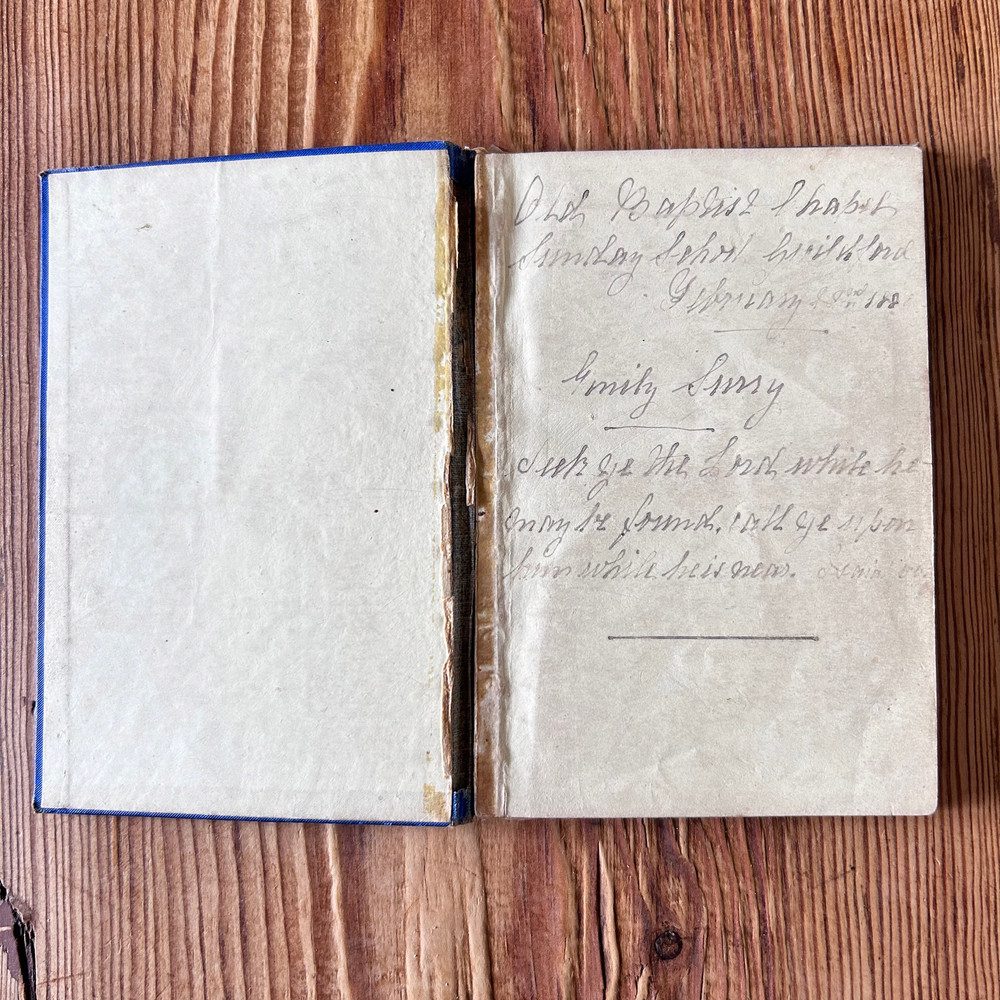 Old Baptist Chapel
Sunday School Guildford
February
Emily
Seek ye the Lord while he
may be found, call ye upon
him while he is near.